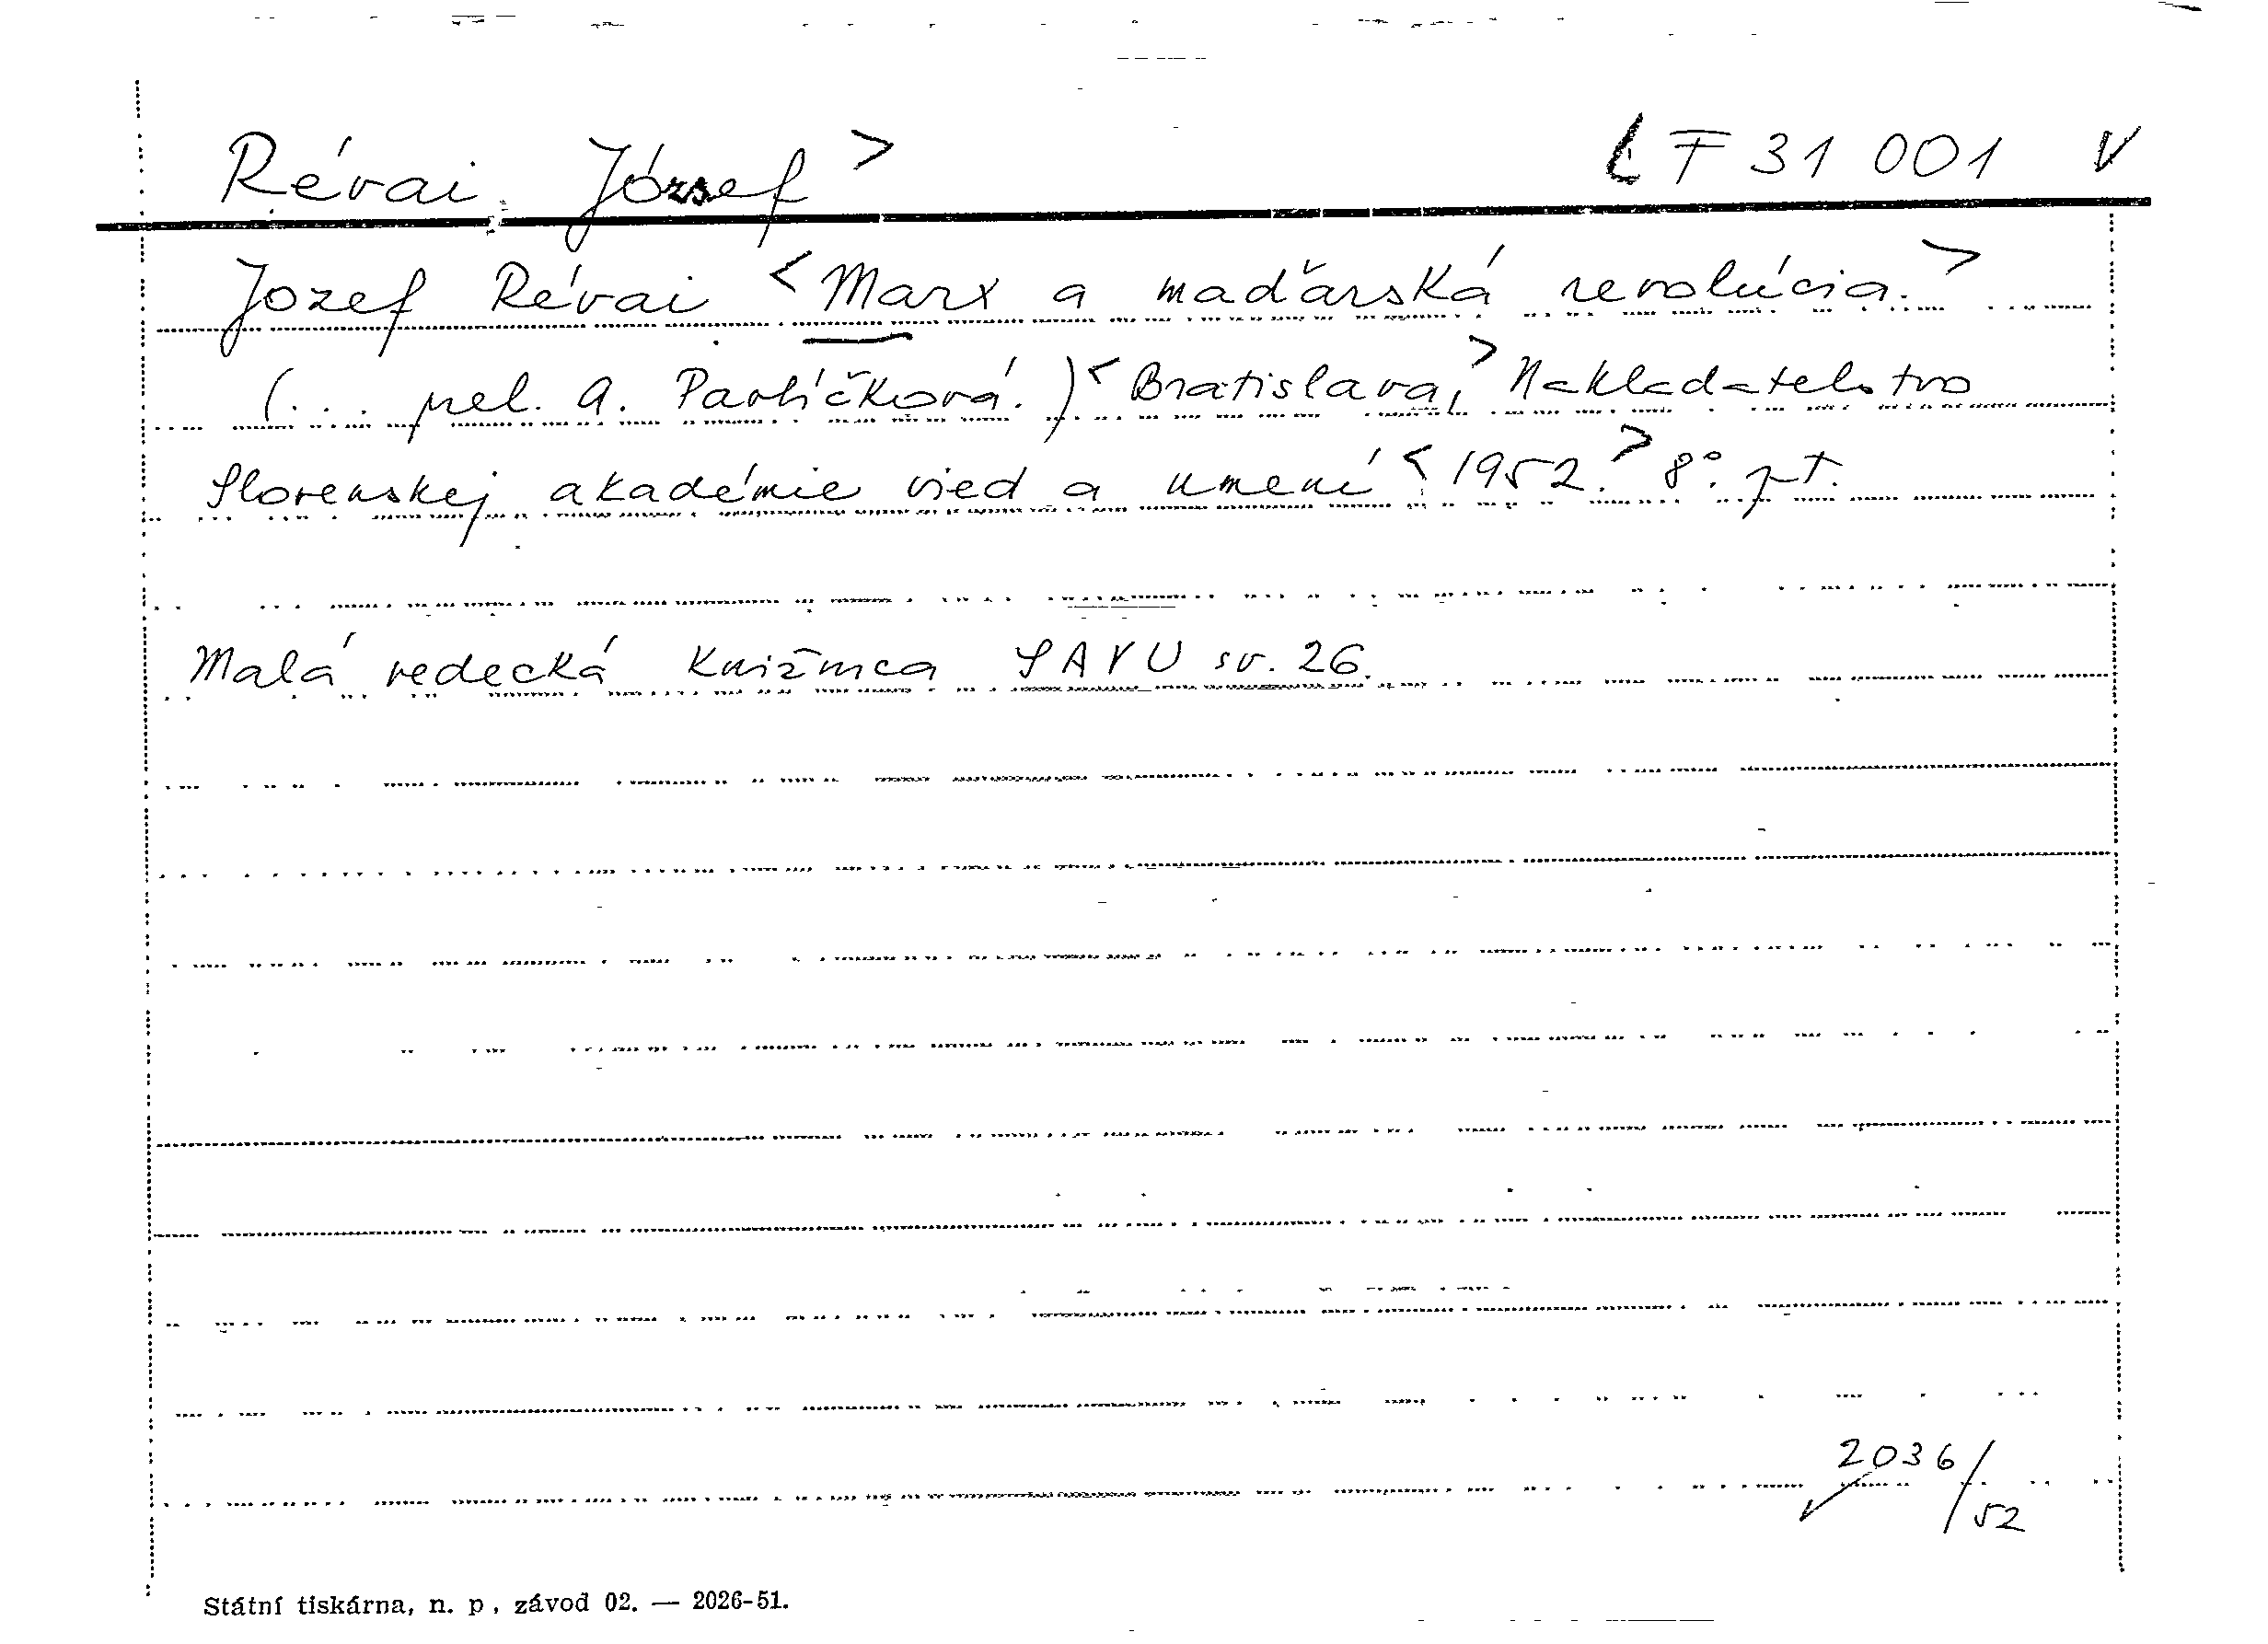 Révai, József > LF 31 001 V
Jozef Révai < Marx a maďarská revolúcia. >
(... prel. A. Pavlíčková.) < Bratislava, > Nakladatelstvo
Slovenskej akadémie vied a umení < 1952. > 8°. pt.
Malá vedecká knižnica SAVU sv. 26.
2036/52
Státní tiskárna, n. p., závod 02. — 2026-51.